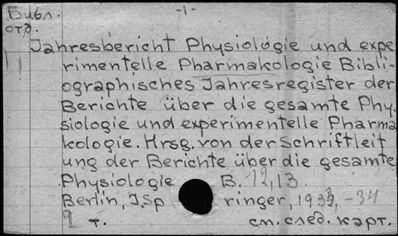 Библ. -1-
отд.
Jahresbericht Physiologie und expe
rimentelle Pharmakologie Bibli-
ographisches Jahresregister der
Berichte über die gesamte Phy
siologie und experimentelle Pharma
kologie. Hrsg. von der Schriftleit
ung der Berichte über die gesamte
Physiologie B. 12, 13
Berlin, J. Sp ringer, 1933, -34
2 т. см. след. карт.